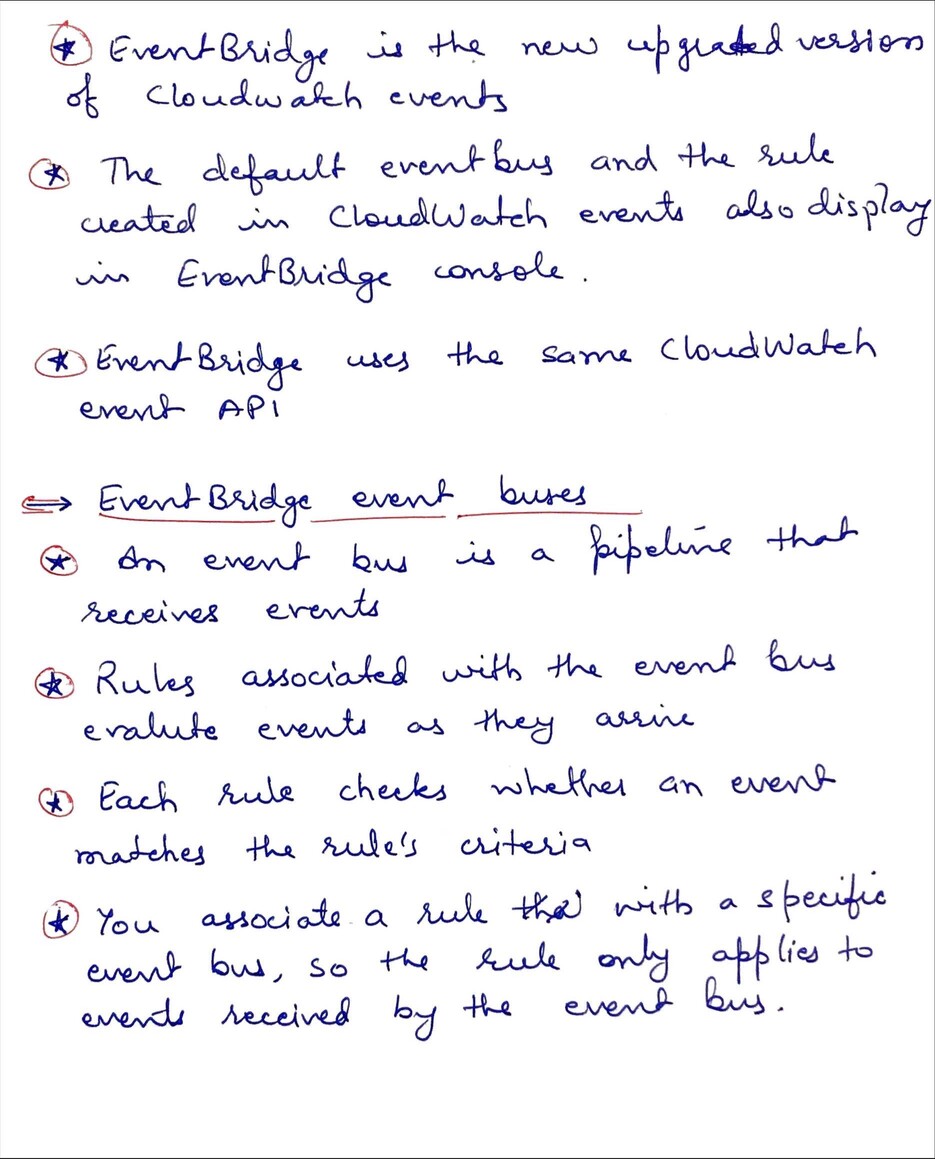 EventBridge is the new upgraded version
of Cloudwatch events
The default eventbus and the rule
created in CloudWatch events also display
in EventBridge console.
EventBridge uses the same CloudWatch
event API
EventBridge event buses
An event bus is a pipeline that
receives events
Rules associated with the event bus
evalute events as they arrive
Each rule checks whether an event
matches the rule's criteria
You associate a rule with a specific
event bus, so the rule only applies to
events received by the event bus.